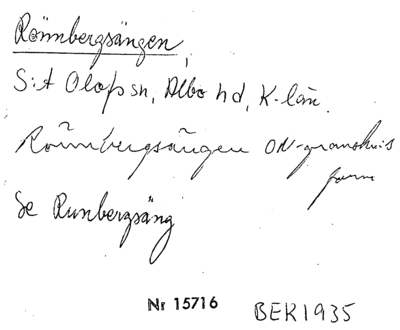 Rönnbergsängen,
S:t Olofs sn, Albo hd, K-län.
Rönnbergsängen ON-gransknis
form
Se Runbergsäng
Nr 15716 BER1935